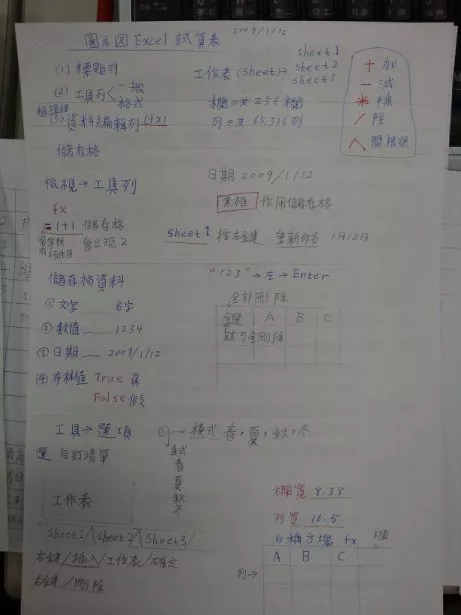 2009/1/12
圖示図 Excel 試算表
(1) 標題列
(2) 工具列 一般
格式
(3) 資料編輯列 (fx)
工作表 (sheet)→ sheet1
sheet2
sheet3
欄→共256欄
列→共65,336列
+ 加
- 減
* 乘
/ 除
^ 開根號
儲存格
檢視→工具列
日期 2009/1/12
fx
=1+1 儲存格
會出現2
黑框 作用儲存格
sheet1 按右鍵 重新命名 1月12日
儲存格資料
"123"→左→Enter
① 文字 名字
② 數值 1234
③ 日期 2009/1/12
④ 布林值 True 真
False 假
全部刪除
A B C
就可全刪除
工具→選項
選 自訂清單
橫式 春,夏,秋,冬
直式
春
夏
秋
冬
工作表
Sheet1 Sheet2 Sheet3
右鍵/插入/工作表/確定
右鍵/刪除
欄寬 8.38
列寬 16.5
名稱方塊 fx
A B C
列→